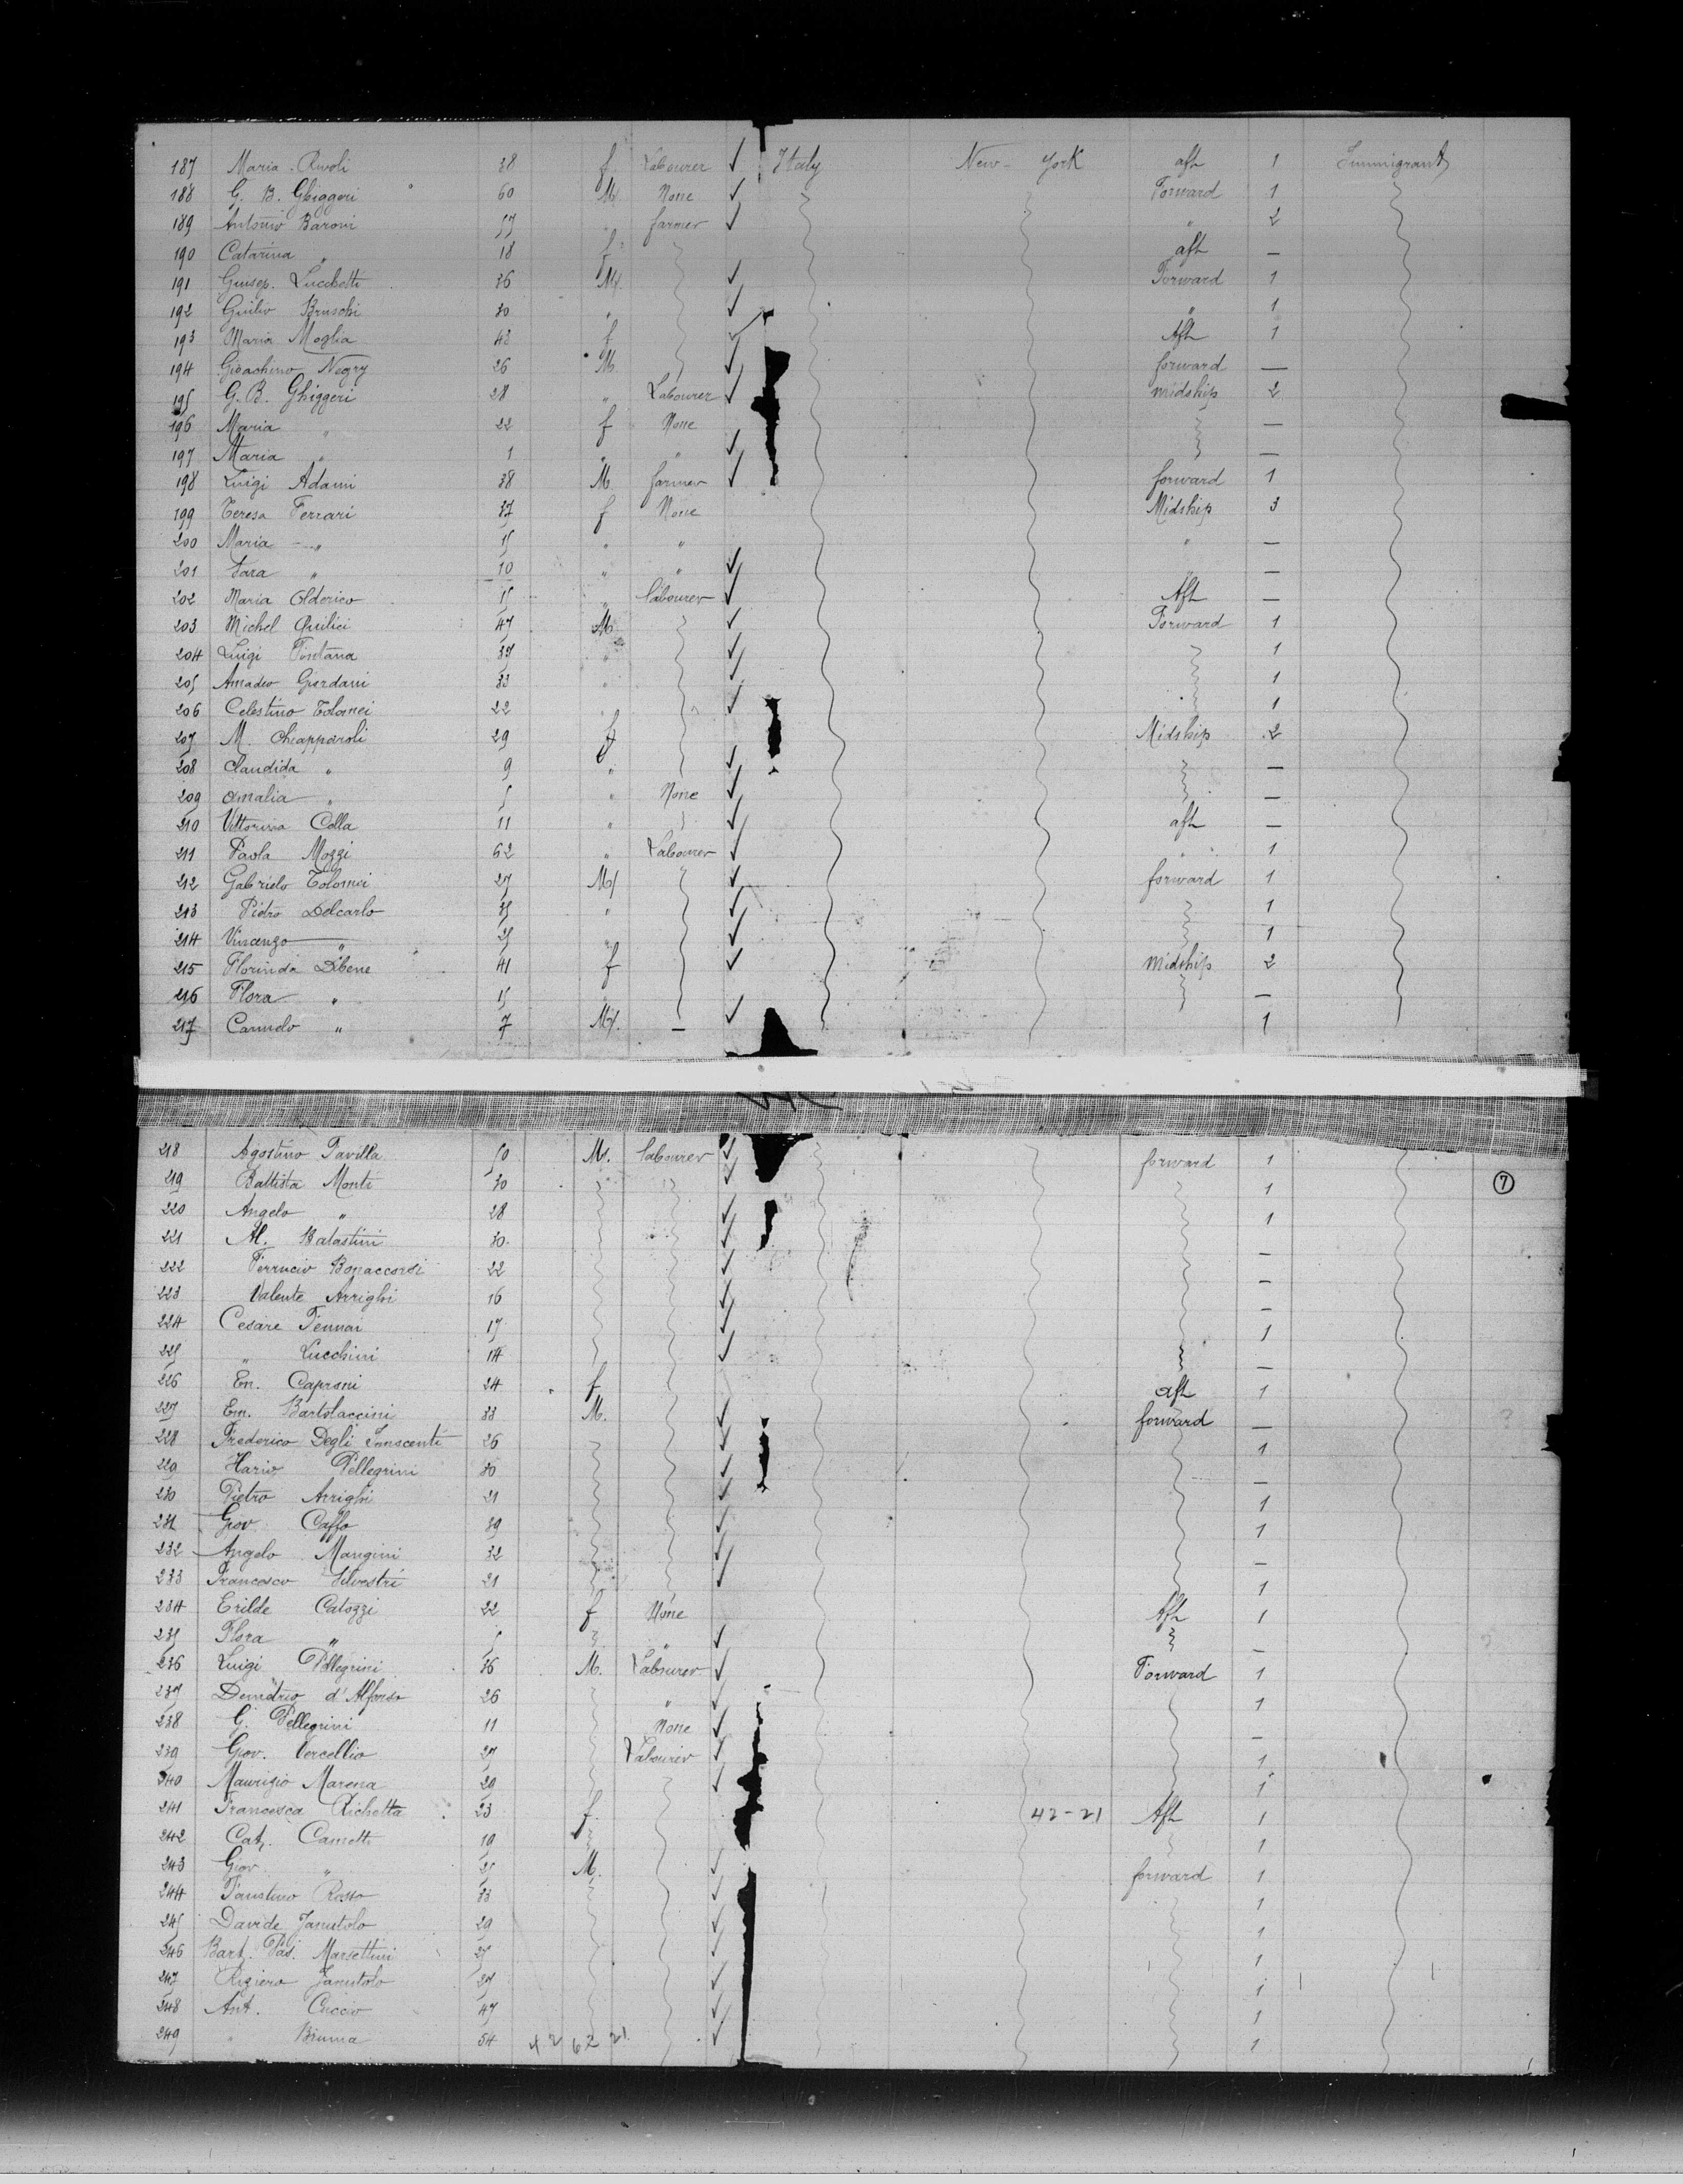 187 Maria Rivoli 38 f Labourer ✓ Italy New-York aft 1 Emmigrant
188 G. B. Ghiggeri 60 M. None ✓ Forward 1
189 Antonio Baroni 57 " farmer ✓ " 2
190 Catarina " 18 f aft —
191 Giusep. Lucchetti 36 M. ✓ Forward 1
192 Guilio Bruschi 30 " ✓ " 1
193 Maria Moglia 43 f ✓ Aft 1
194 Gioachino Negry 26 M. ✓ forward —
195 G. B. Ghiggeri 28 " Labourer ✓ midship 2
196 Maria " 22 f None —
197 Maria " 1 " " ✓ —
198 Luigi Adami 38 M farmer ✓ forward 1
199 Teresa Ferrari 37 f None Midship 3
200 Maria — " 15 " " " —
201 Sara " 10 " " ✓ " —
202 Maria Olderico 15 " labourer ✓ Aft —
203 Michel Quilici 47 M. ✓ Forward 1
204 Luigi Fontana 37 " ✓ 1
205 Amadeo Giordani 33 " ✓ 1
206 Celestino Tolomei 22 " ✓ 1
207 M. Chiapparoli 29 f Midship 2
208 Claudida " 9 " ✓ —
209 Amalia " 5 " None ✓ —
210 Vittorina Cella 11 " ✓ aft —
211 Paola Mozzi 62 " Labourer ✓ " 1
212 Gabriele Tolomei 27 M. ✓ forward 1
213 Pietro Delcarlo 35 " ✓ 1
214 Vincenzo " 25 " ✓ 1
215 Florinda Dibene 41 f ✓ Midship 2
216 Flora " 15 —
217 Carmelo " 7 M. — ✓ 1
218 Agostino Favilla 50 M. labourer ✓ forward 1
219 Battista Monti 30 ✓ 1 7
220 Angelo " 28 ✓ 1
221 Al. Balastini 30. ✓ —
222 Ferrucio Bonaccorsi 22 ✓ —
223 Valente Arrighi 16 ✓ —
224 Cesare Fennai 17 ✓ 1
225 " Lucchini 14 ✓ —
226 En. Caproni 24 f aft 1
227 Em. Bartolaccini 33 M. ✓ forward —
228 Frederico Degli Innscenti 26 ✓ 1
229 Hario Pellegrini 30 ✓ —
230 Pietro Arrighi 21 ✓ 1
231 Giov. Caffo 39 ✓ 1
232 Angelo Mangini 32 ✓ —
233 Francesco Silvestri 21 ✓ 1
234 Erilde Catozzi 22 f None Aft 1
235 Flora " 5 " ✓ —
236 Luigi Pellegrini 36 M. Labourer ✓ Forward 1
237 Demetrio d'Alfonso 26 " ✓ 1
238 G. Pellegrini 11 None ✓ —
239 Giov. Vercellio 27 Labourer ✓ 1
240 Maurizio Marena 29 ✓ 1
241 Francesca Richetta 23 f. 42-21 Aft 1
242 Cat. Cametti 19 1
243 Giov. " 25 M. ✓ forward 1
244 Faustino Rosso 33 ✓ 1
245 Davide Janutolo 29 ✓ 1
246 Bart. Pas. Marsettini 25 ✓ 1
247 Rigiero Janutolo 27 ✓ 1
248 Ant. Cuccio 47 ✓ 1
249 " Bruma 54 42 62 21 ✓ 1